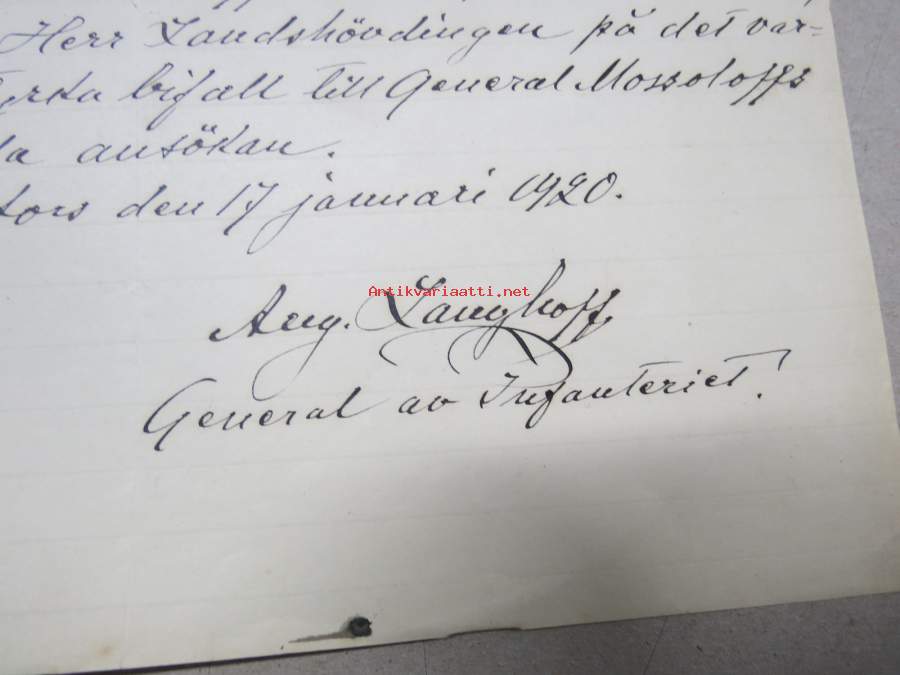 Herr Landshövdingen på det var-
bifall till General Mossoloffs
ansökan.
den 17 januari 1920.
Antikvariaatti.net
Aug. Langhoff
General av Infanteriet.